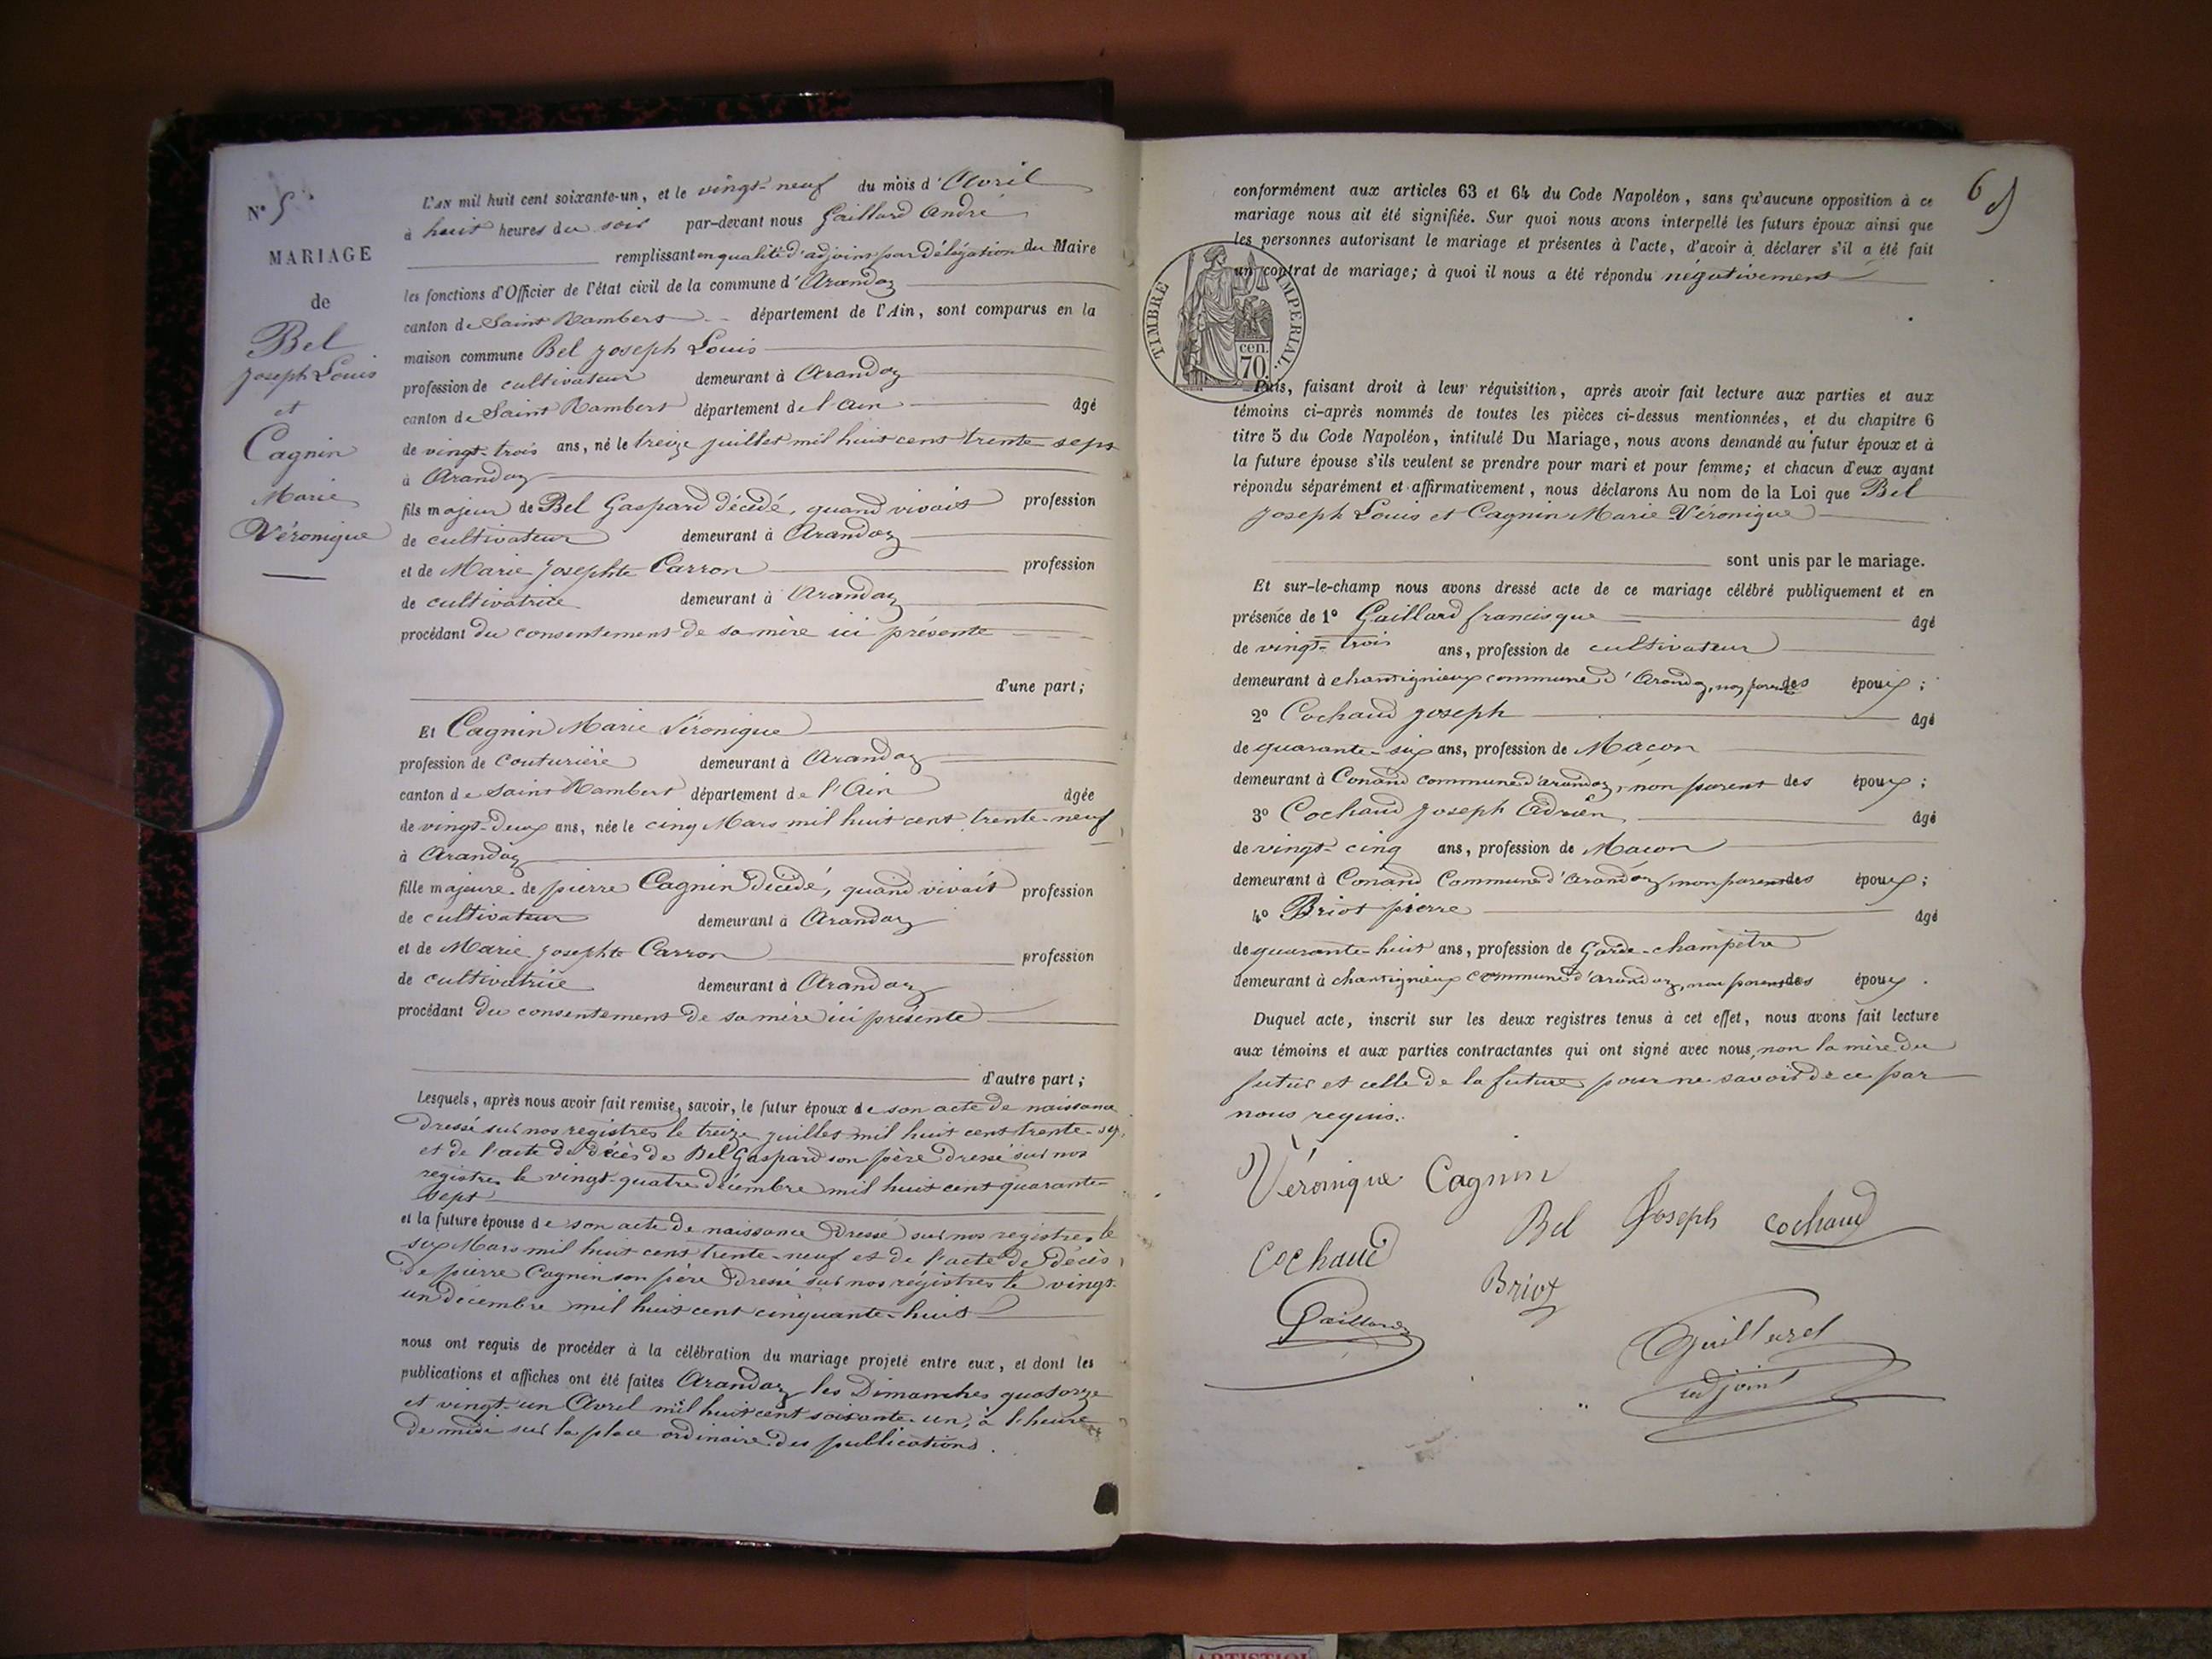 N° 5
MARIAGE
de
Bel
Joseph Louis
et
Cagnin
Marie
Véronique
L'AN mil huit cent soixante-un, et le vingt-neuf du mois d'Avril
à huit heures du soir par-devant nous Gaillard André
remplissant en qualité d'adjoint par délégation du Maire
les fonctions d'Officier de l'état civil de la commune d'Arandaz
canton de Saint Rambert département de l'Ain, sont comparus en la
maison commune Bel Joseph Louis
profession de cultivateur demeurant à Arandaz
canton de Saint Rambert département de l'ain âgé
de vingt-trois ans, né le treize juillet mil huit cent trente sept
à Arandaz
fils majeur de Bel Gaspard décédé, quand vivait profession
de cultivateur demeurant à Arandaz
et de Marie Josephte Carron profession
de cultivatrice demeurant à Arandaz
procédant du consentement de sa mère ici présente
d'une part;
Et Cagnin Marie Véronique
profession de Couturière demeurant à Arandaz
canton de Saint Rambert département de l'Ain âgée
de vingt-deux ans, née le cinq Mars mil huit cent trente-neuf
à Arandaz
fille majeure de pierre Cagnin décédé, quand vivait profession
de cultivateur demeurant à Arandaz
et de Marie Josephte Carron profession
de cultivatrice demeurant à Arandaz
procédant du consentement de sa mère ici présente
d'autre part;
Lesquels, après nous avoir fait remise, savoir, le futur époux de son acte de naissance
dressé sur nos registres le treize juillet mil huit cent trente-sep,
et de l'acte de décès de Bel Gaspard son père dressé sur nos
registres le vingt-quatre décembre mil huit cent quarante-
sept
et la future épouse de son acte de naissance dressé sur nos registres le
six Mars mil huit cent trente-neuf et de l'acte de décès
de pierre Cagnin son père dressé sur nos régistres le vingt-
un décembre mil huit cent cinquante-huit
nous ont requis de procéder à la célébration du mariage projeté entre eux, et dont les
publications et affiches ont été faites Arandaz les Dimanches quatorze
et vingt-un Avril mil huit cent soixante-un, à l'heure
de midi sur la place ordinaire des publications.
6
conformément aux articles 63 et 64 du Code Napoléon, sans qu'aucune opposition à ce
mariage nous ait été signifiée. Sur quoi nous avons interpellé les futurs époux ainsi que
les personnes autorisant le mariage et présentes à l'acte, d'avoir à déclarer s'il a été fait
un contrat de mariage; à quoi il nous a été répondu négativement
TIMBRE IMPERIAL.
cen.
70
Puis, faisant droit à leur réquisition, après avoir fait lecture aux parties et aux
témoins ci-après nommés de toutes les pièces ci-dessus mentionnées, et du chapitre 6
titre 5 du Code Napoléon, intitulé Du Mariage, nous avons demandé au futur époux et à
la future épouse s'ils veulent se prendre pour mari et pour femme; et chacun d'eux ayant
répondu séparément et affirmativement, nous déclarons Au nom de la Loi que Bel
Joseph Louis et Cagnin Marie Véronique
sont unis par le mariage.
Et sur-le-champ nous avons dressé acte de ce mariage célébré publiquement et en
présence de 1° Gaillard francisque âgé
de vingt-trois ans, profession de cultivateur
demeurant à chantignieux commune d'Arandaz, non parent des époux;
2° Cochaud Joseph âgé
de quarante-six ans, profession de Maçon
demeurant à Conand commune d'arandaz, non parent des époux;
3° Cochaud Joseph Adrien âgé
de vingt-cinq ans, profession de Macon
demeurant à Conand Commune d'arandaz, non parent des époux;
4° Briot pierre âgé
de quarante-huit ans, profession de Garde-champêtre
demeurant à chantignieux commune d'arandaz, non parent des époux.
Duquel acte, inscrit sur les deux registres tenus à cet effet, nous avons fait lecture
aux témoins et aux parties contractantes qui ont signé avec nous, non la mère du
futur et celle de la future pour ne savoir de ce par
nous requis.
Véronique Cagnin
Bel Joseph Cochaud
Cochaud
Briot
Gaillard
Gaillard
adjoint